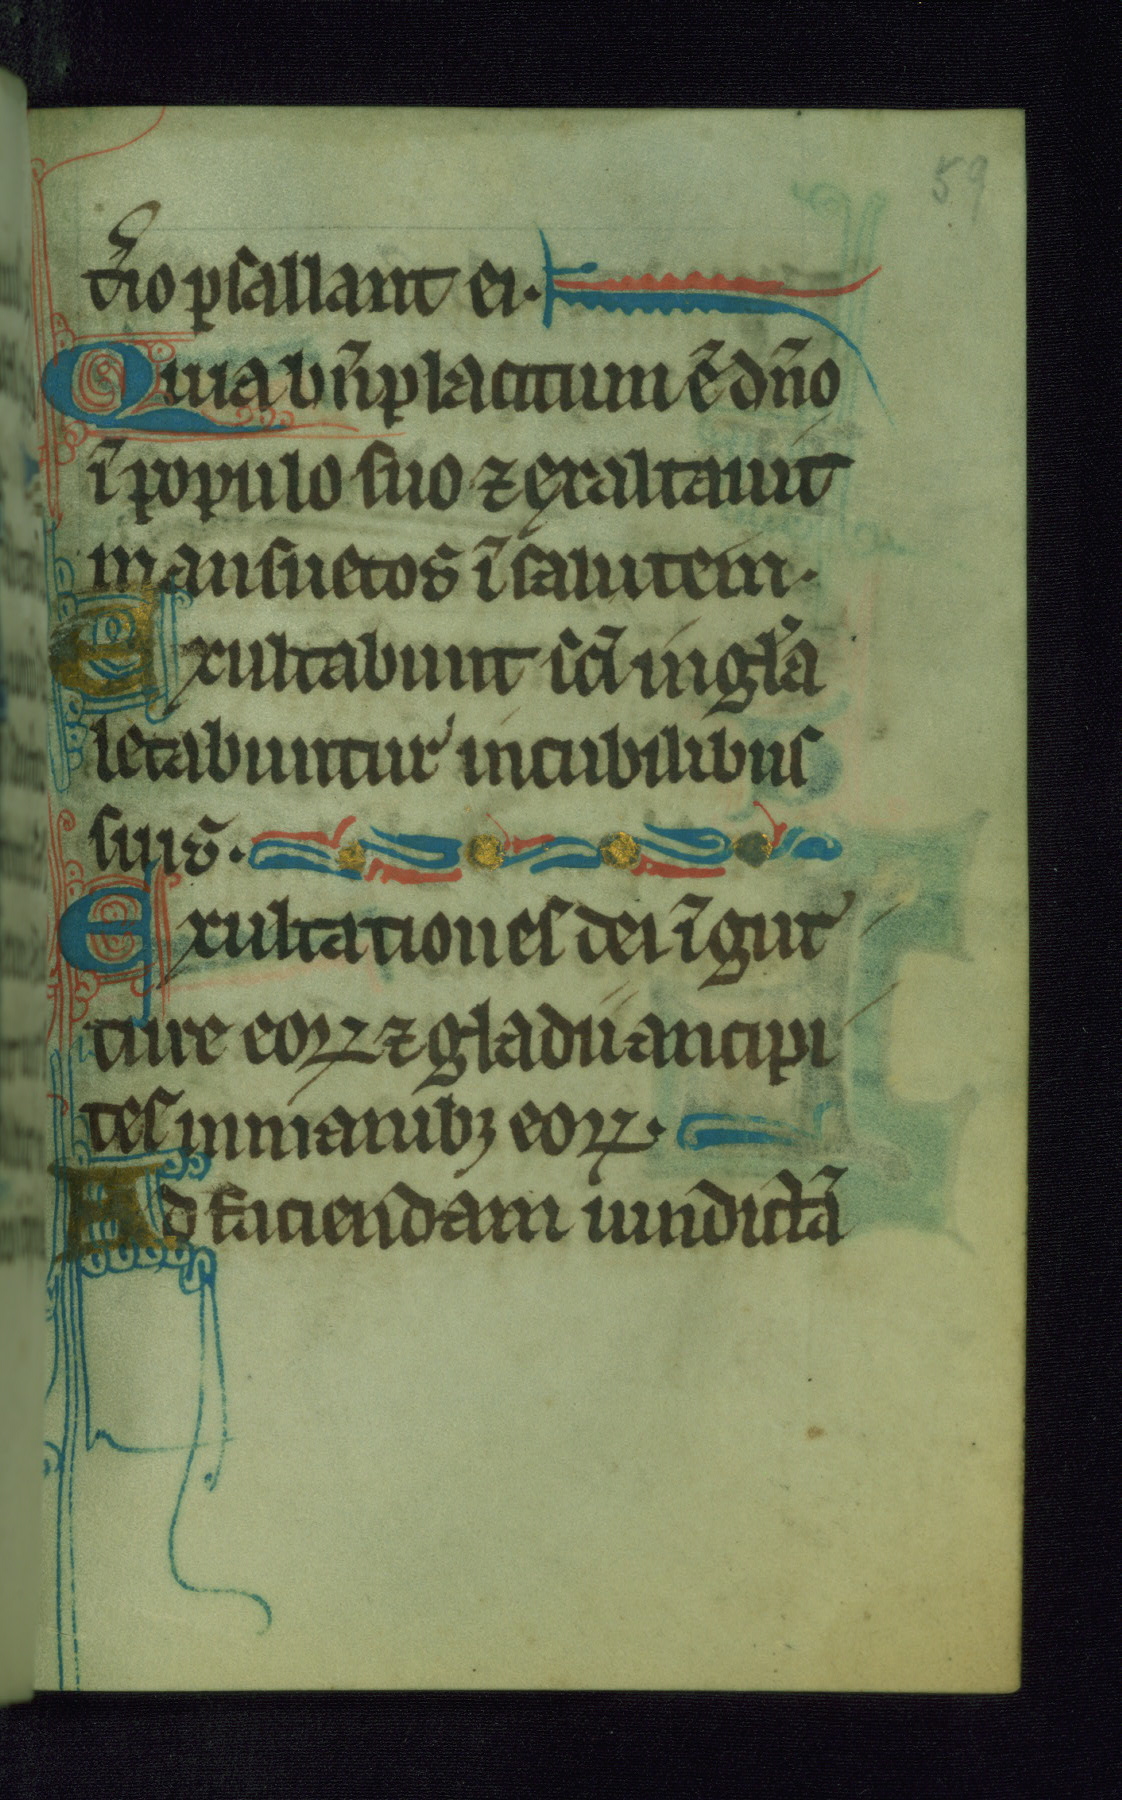 59
t̃io psallant ei.
Quia bñplacitum ẽ dño
ĩ populo suo ⁊ exaltauit
mansuetos ĩ salutem.
Exultabunt sc̃i in gl̃a
letabuntur in cubilibus
suis.
Exultationes dei ĩ gut
ture eoꝝ ⁊ gladii ancipi
tes in manibꝫ eoꝝ.
Ad faciendam uindictã